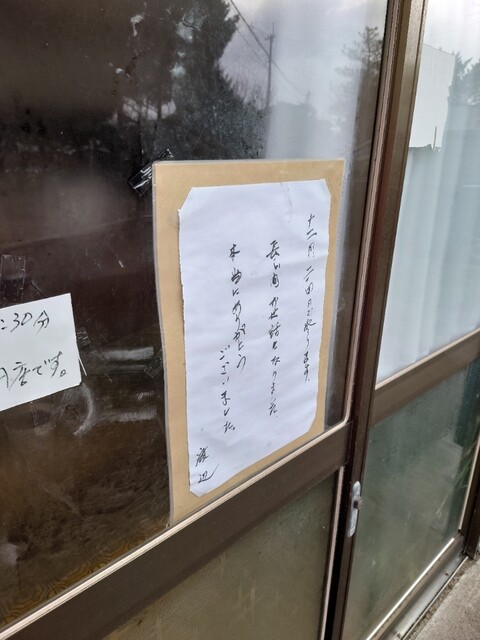 十二月二十四日で終ります。
長い間お世話になりました
本当にありがとう
ございました。
渡辺
:30分
店です。